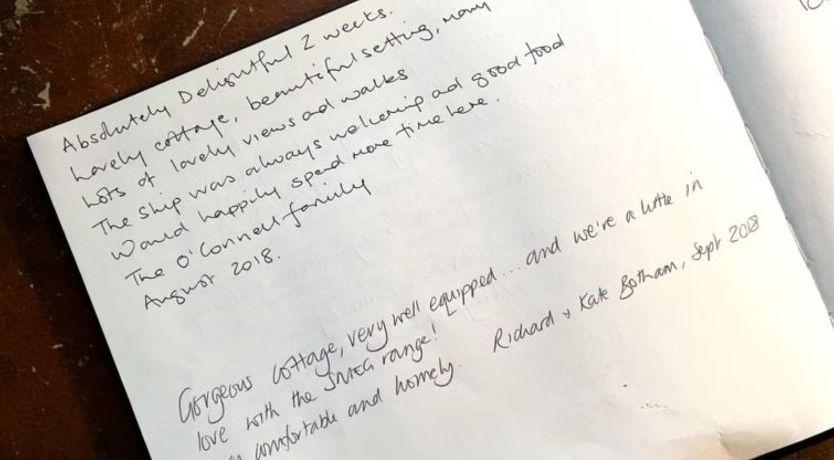 Absolutely Delightful 2 weeks.
Lovely cottage, beautiful setting, many
Lots of lovely views ad walks
The Ship was always welcoming ad good food
Would happily spend more time here.
The O'Connell family
August 2018.
Gorgeous cottage, very well equipped... and we're a little in
love with the SMEG range!
comfortable and homely. Richard & Kate Botham, Sept 2018